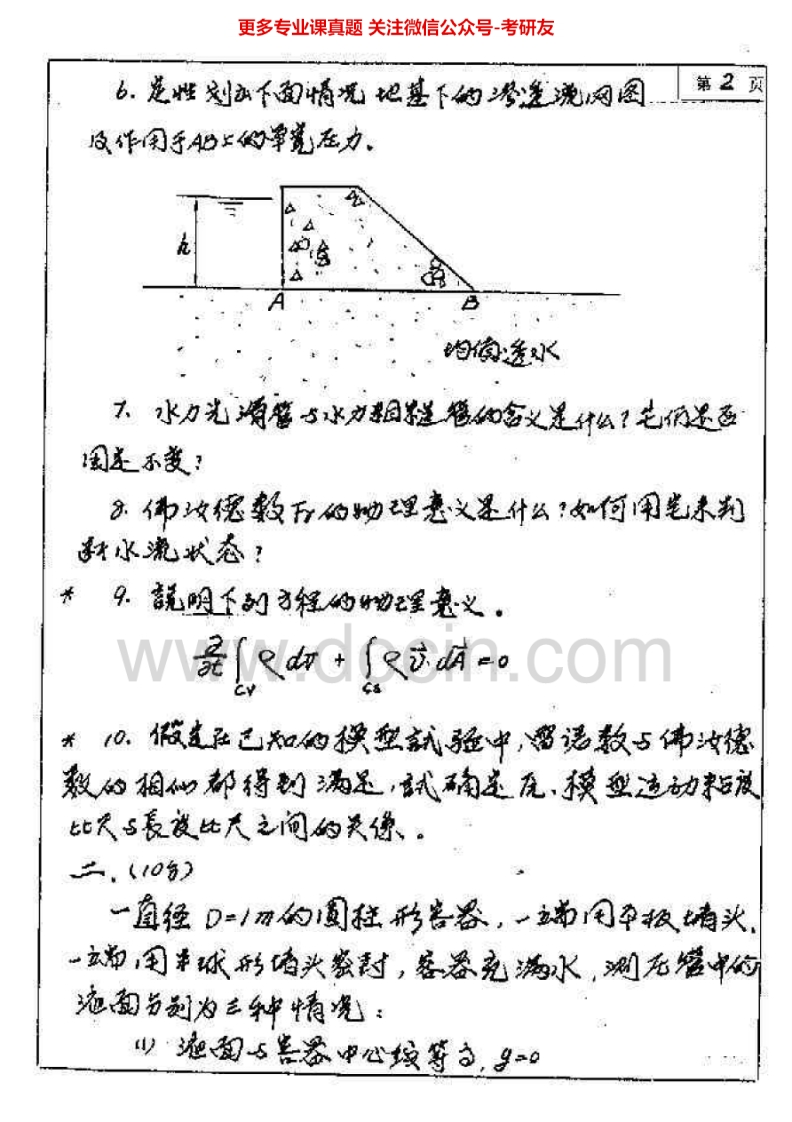 更多专业课真题 关注微信公众号-考研友
第2页
6. 定性划出下面情况地基下的渗透流网图
及作用于AB上的单宽压力。
h
A B
均质透水
7. 水力光滑管与水力粗糙管的含义是什么?它们是否
固定不变?
8. 佛汝德数Fr的物理意义是什么?如何用它来判
断水流状态?
* 9. 説明下列方程的物理意义。
∂/∂t ∫cv ρdv + ∫cs ρv⃗·dA⃗ = 0
www.docin.com
* 10. 假定在已知的模型試验中,雷诺数与佛汝德
数的相似都得到满足,試确定原、模型运动粘度
比尺与長度比尺之间的关係。
二.(10分)
一直径D=1m的圆柱形容器,一端用平板堵头,
一端用半球形堵头密封,容器充满水,测压管中的
液面分别为三种情况:
(1) 液面与容器中心线等高,y=0